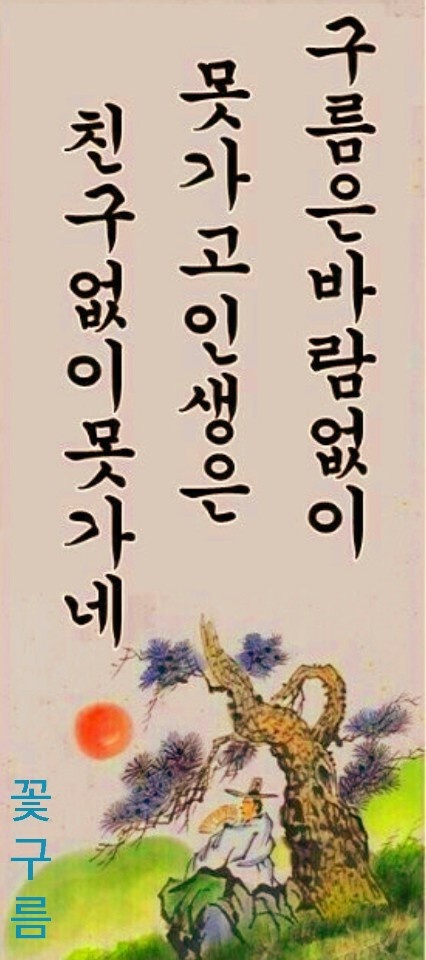 구름은바람없이
못가고인생은
친구없이못가네
꽃구름